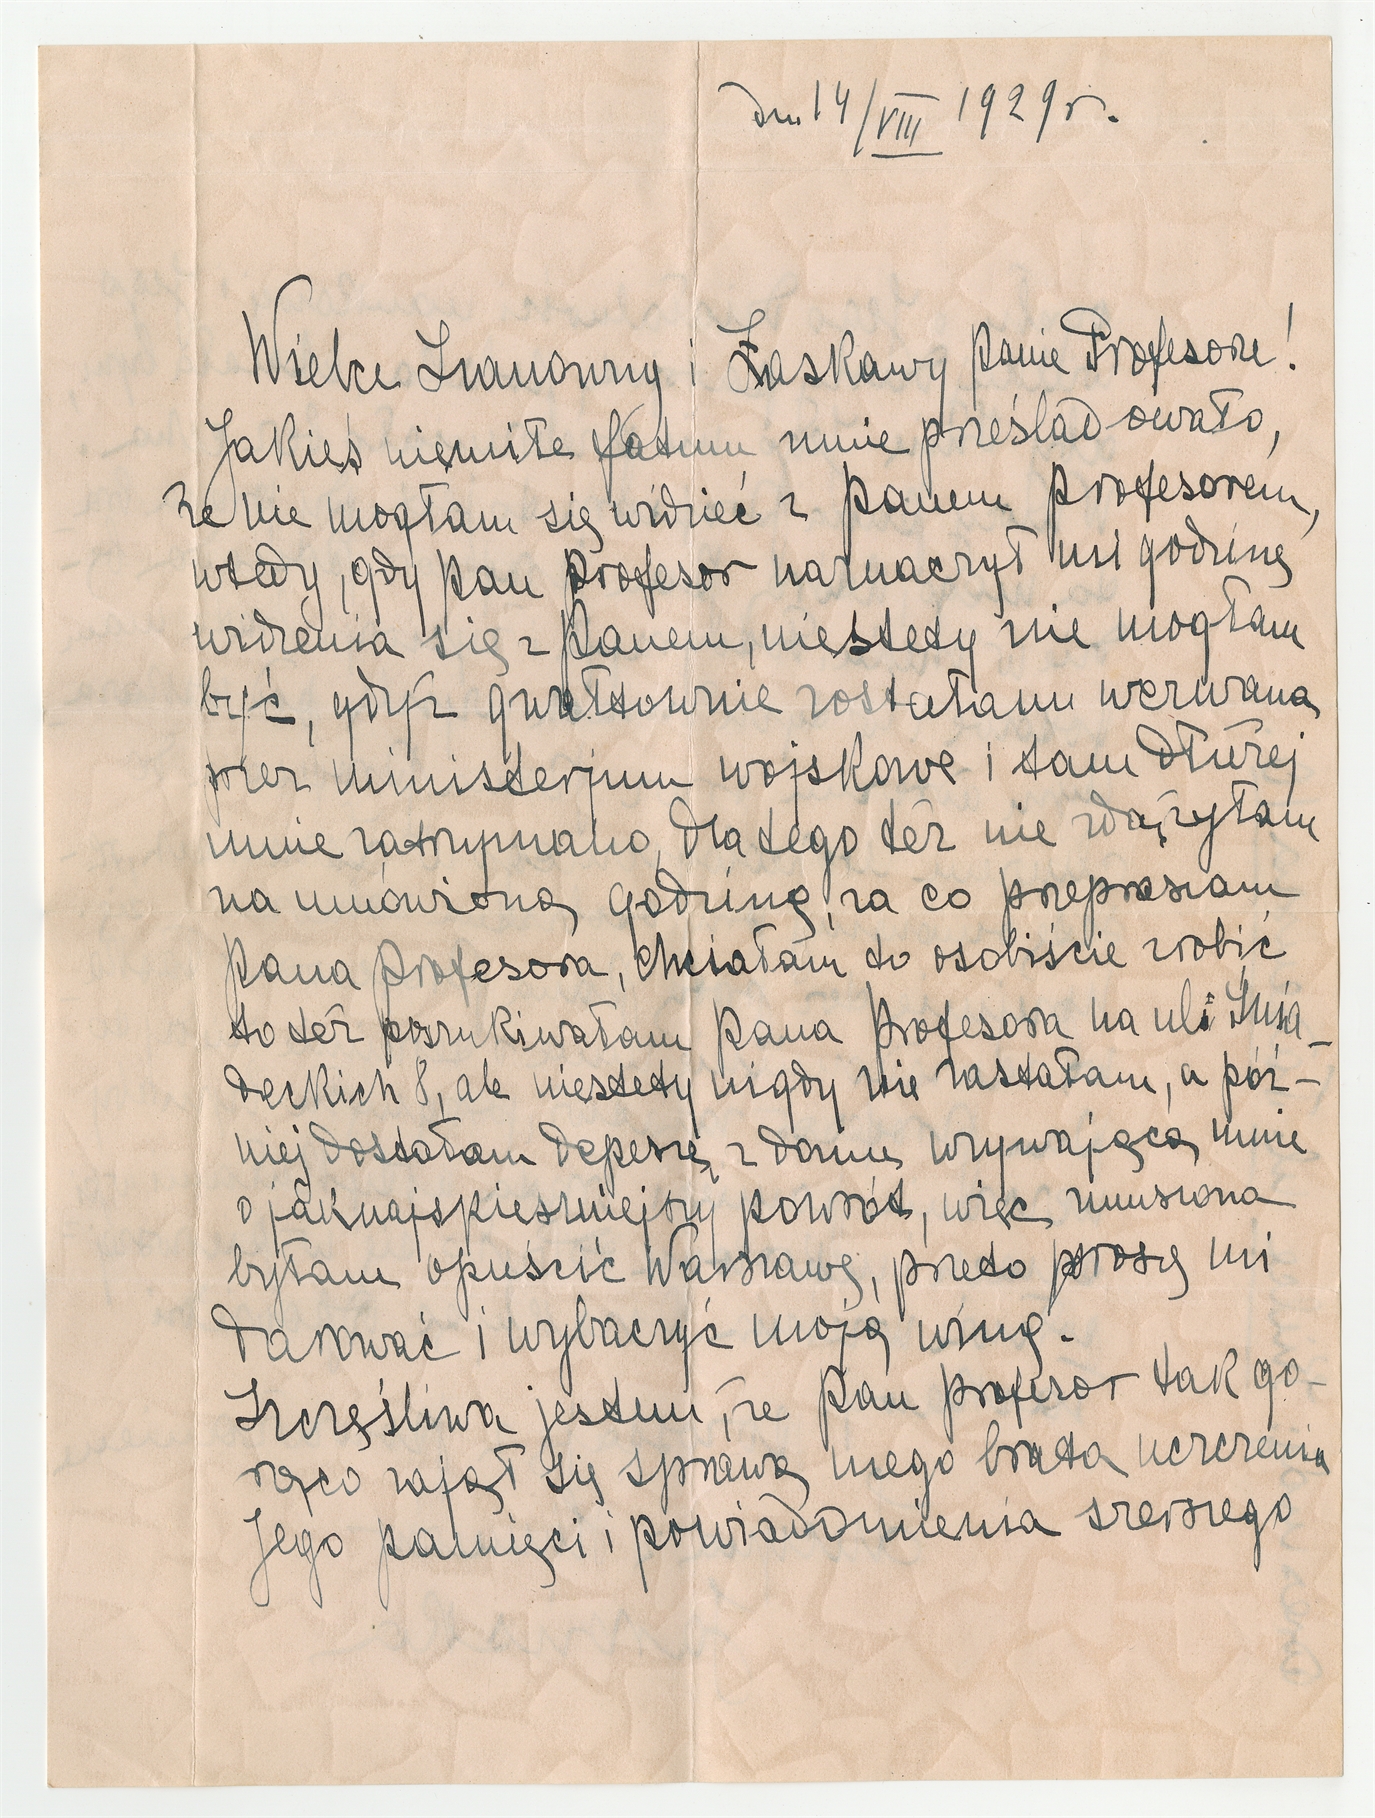 dn. 14/VIII 1929 r.
Wielce Szanowny i Łaskawy Panie Profesorze!
Jakieś niemiłe fatum mnie prześladowało,
że nie mogłam się widzieć z Panem Profesorem,
wtedy, gdy Pan Profesor naznaczył mi godzinę
widzenia się z Panem, niestety nie mogłam
być, gdyż gwałtownie zostałam wezwana
przez ministerjum wojskowe i tam dłużej
mnie zatrzymano, dla tego też nie zdążyłam
na umówioną godzinę, za co przepraszam
Pana Profesora, chciałam to osobiście zrobić
to też poszukiwałam Pana Profesora na uli Śnia-
deckich 8, ale niestety nigdy nie zastałam, a póź-
niej dostałam depeszę z domu wzywającą mnie
o jaknajspieszniejszy powrót, więc zmuszona
byłam opuścić Warszawę, przeto proszę mi
darować i wybaczyć moją winę.
Szczęśliwa jestem, że Pan Profesor tak go-
rąco zajął się sprawą mego brata uczczenia
Jego pamięci i powiadomienia szerszego